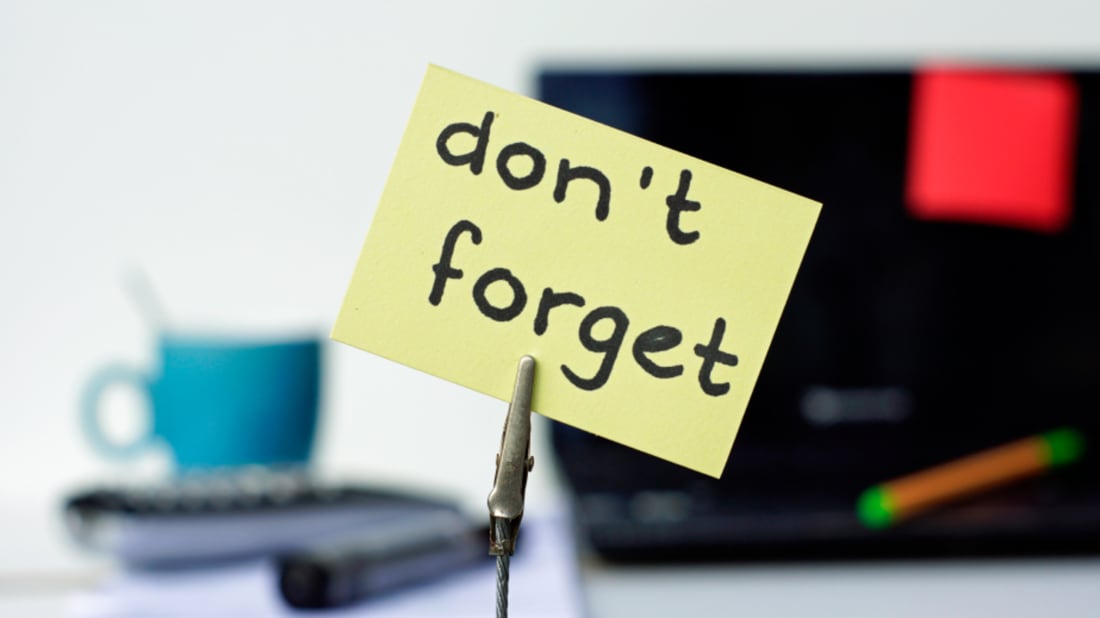 don't
forget